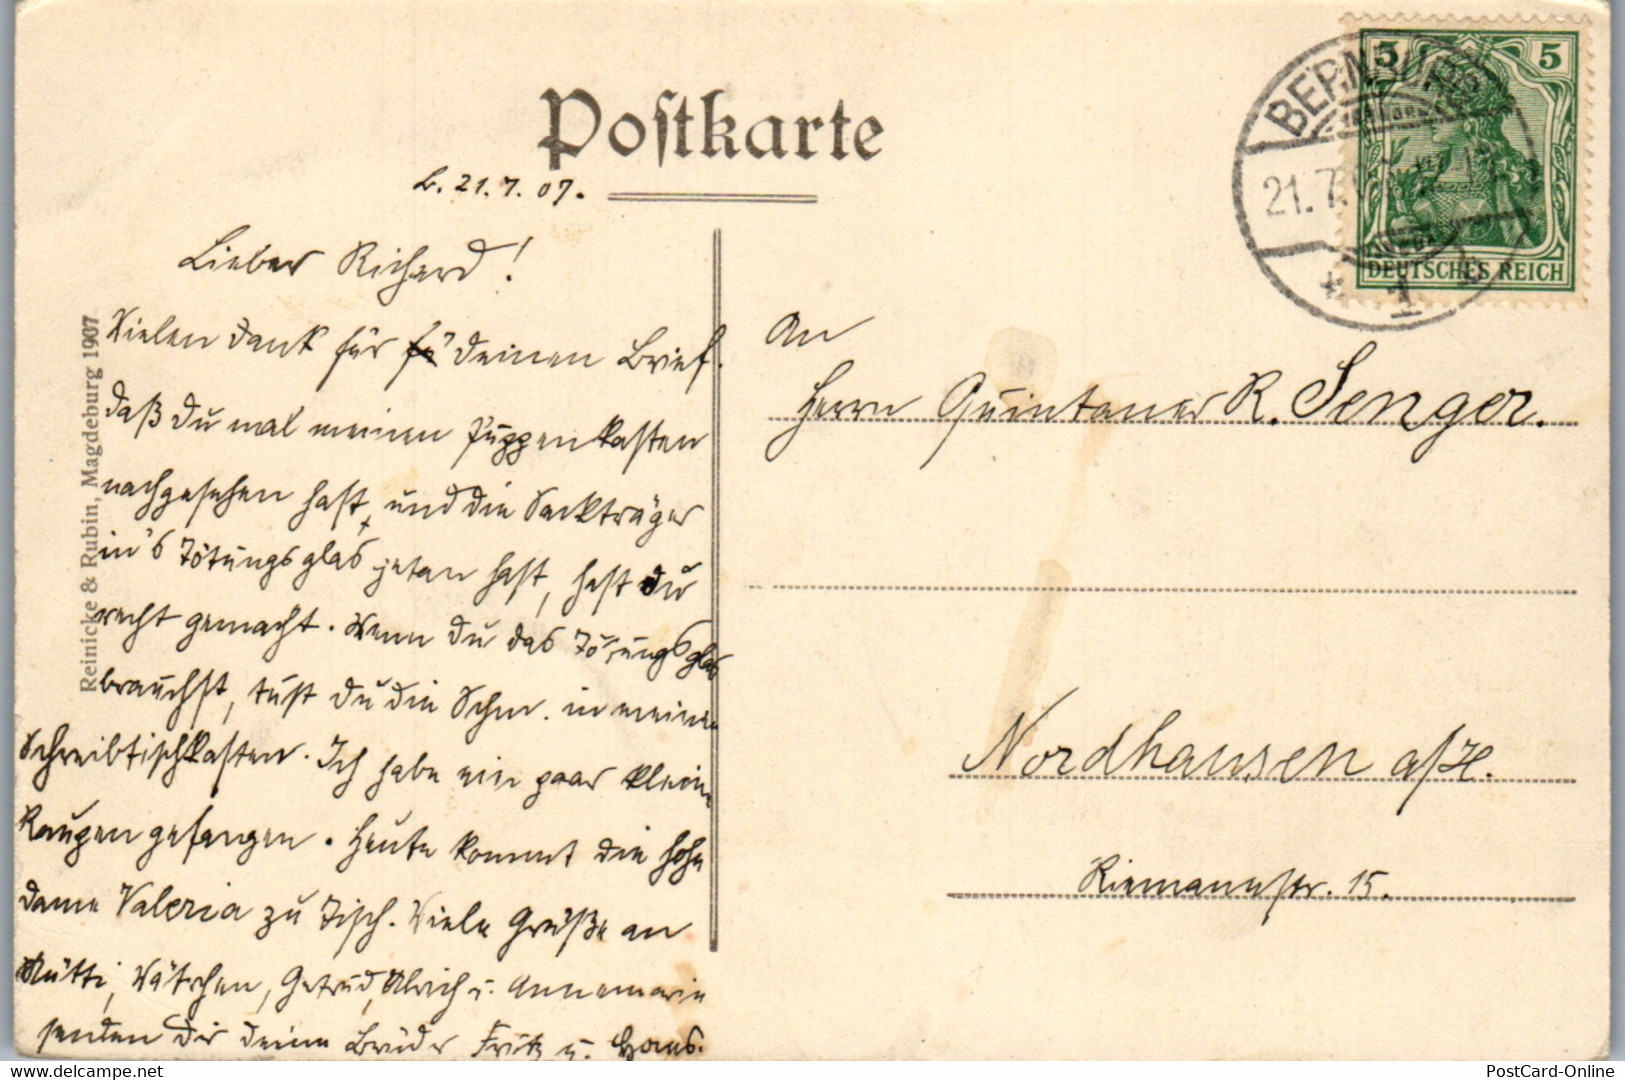 Postkarte
B. 21. 7. 07.
Lieber Richard!
Vielen Dank für deinen Brief.
Daß du mal meinen Puppenkasten
nachgesehen hast, und die Sackträger
in's Tötungsglas getan hast, hast du
recht gemacht. Wenn du das Tötungsglas
brauchst, tust du die Schm. in meinen
Schreibtischkasten. Ich habe ein paar kleine
Raupen gefangen. Heute kommt die hohe
Dame Valeria zu Tisch. Viele Grüße an
Mutti, Vätchen, Getrud, Ulrich u. Annemarie
senden dir deine Brüder Fritz u. Hans.
Reinicke & Rubin, Magdeburg 1907
BERNBURG
21.7.
* 1
5 5
DEUTSCHES REICH
An
Herrn Quintaner R. Senger.
Nordhausen a/H.
Riemannstr. 15.
PostCard-Online